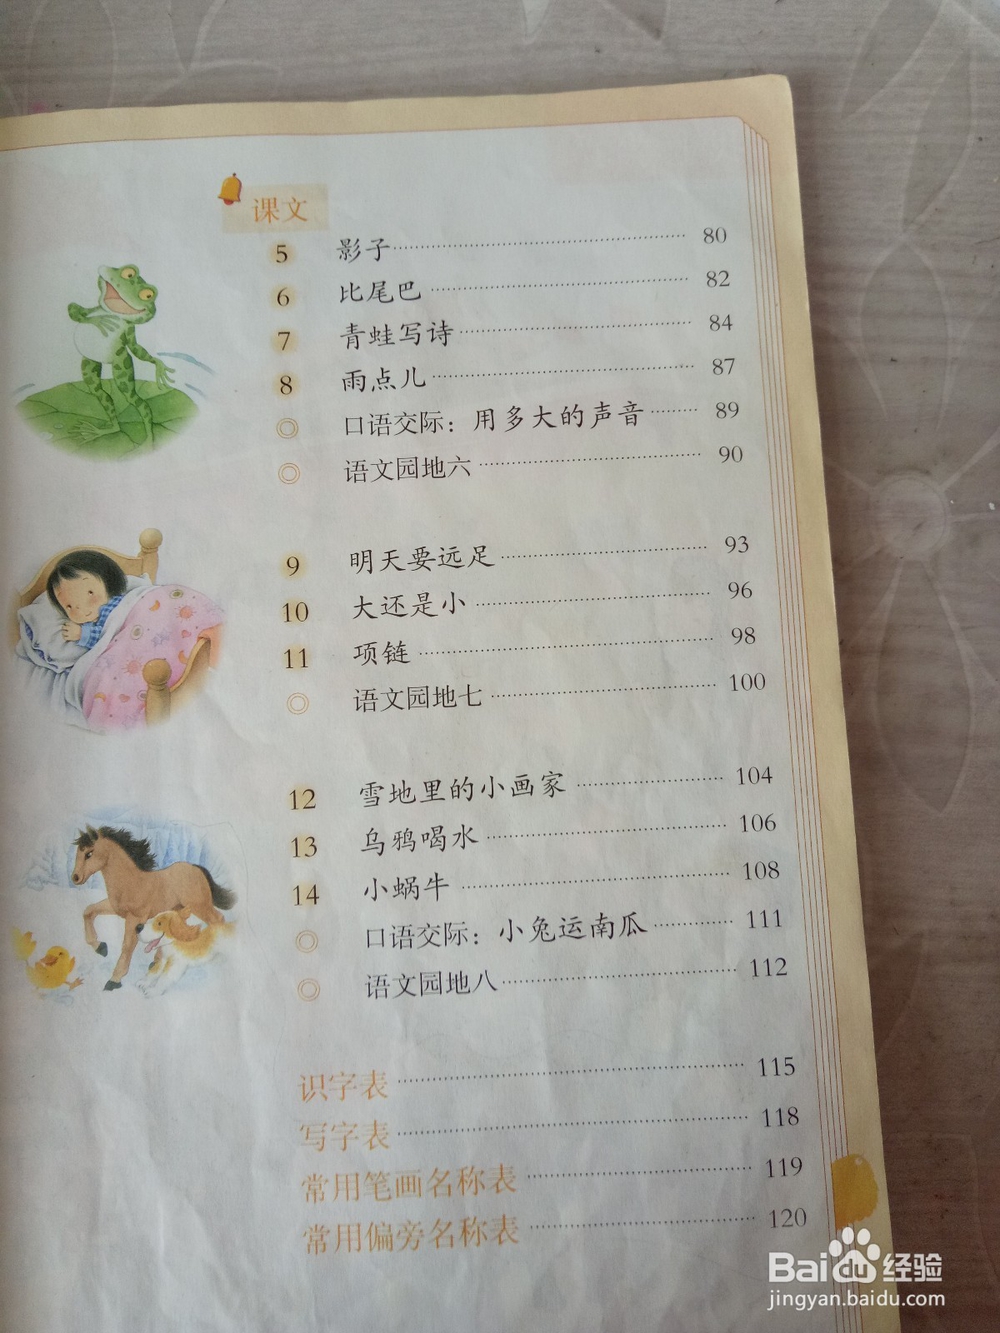 课文
5 影子 80
6 比尾巴 82
7 青蛙写诗 84
8 雨点儿 87
◎ 口语交际：用多大的声音 89
◎ 语文园地六 90
9 明天要远足 93
10 大还是小 96
11 项链 98
◎ 语文园地七 100
12 雪地里的小画家 104
13 乌鸦喝水 106
14 小蜗牛 108
◎ 口语交际：小兔运南瓜 111
◎ 语文园地八 112
识字表 115
写字表 118
常用笔画名称表 119
常用偏旁名称表 120
Baidu经验
jingyan.baidu.com